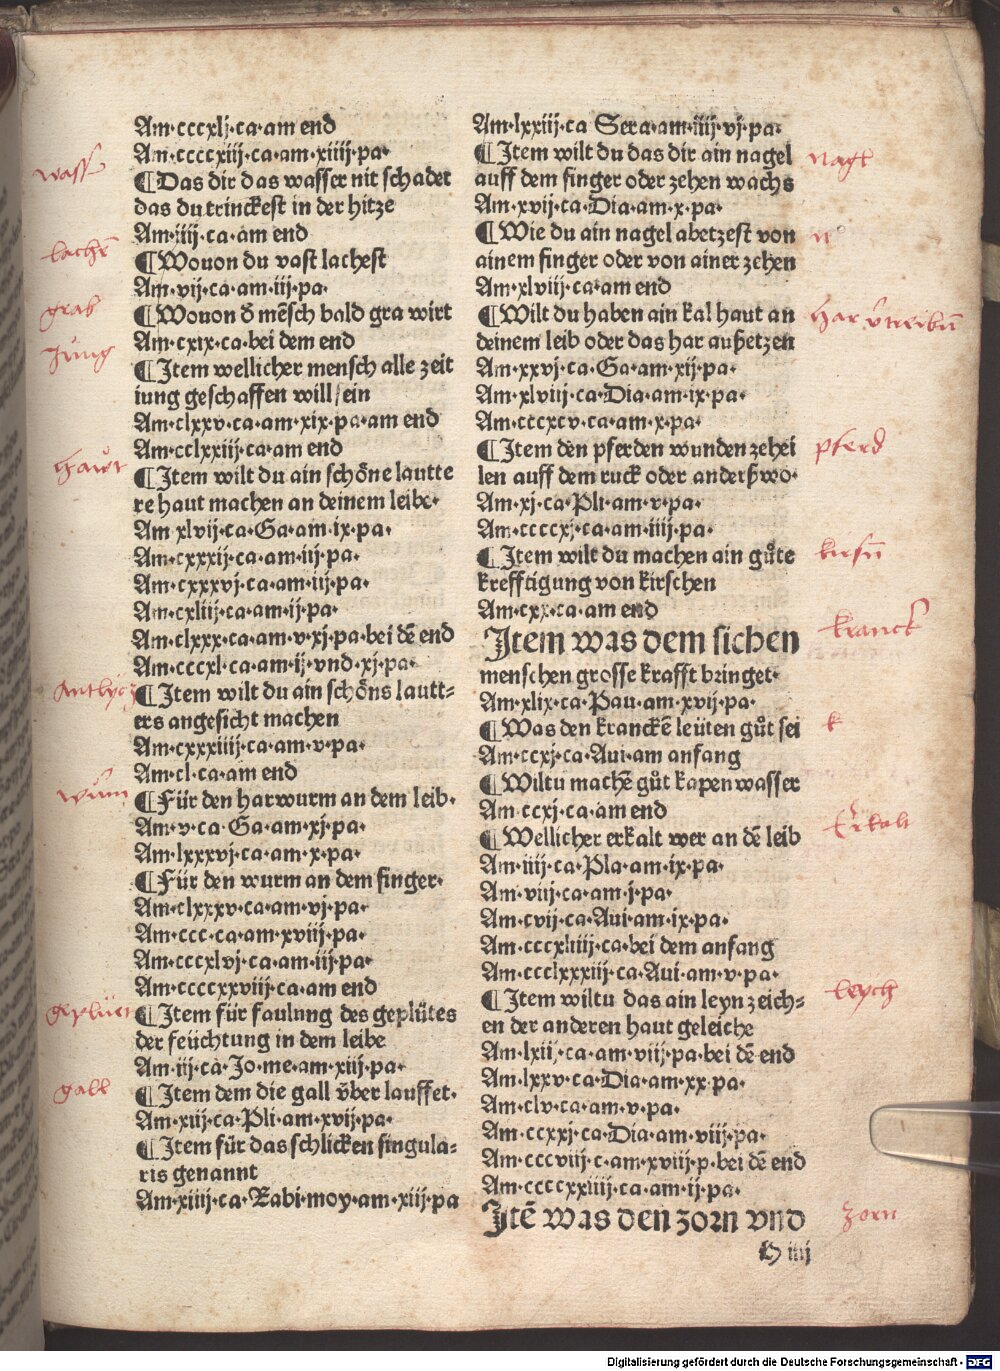 Am·cccxlj·ca·am end
Am·ccccxiij·ca·am·xiiij·pa·
wass
¶Das dir das wasser nit schadet
das du trinckest in der hitze
Am·iiij·ca·am end
lachē
¶Wouon du vast lachest
Am·vij·ca·am·iij·pa·
grab
¶Wouon d̄ mēsch bald gra wirt
Am·cxix·ca·bei dem end
Jung
¶Item wellicher mensch alle zeit
iung geschaffen will sein
Am·clxxv·ca·am·xix·pa·am end
Am·cclxxiij·ca·am end
hawt
¶Item wilt du ain schöne lautte
re haut machen an deinem leibe·
Am xlvij·ca·Ga·am·ix·pa·
Am·cxxxij·ca·am·iij·pa·
Am·cxxxvj·ca·am·iij·pa·
Am·cxliij·ca·am·ij·pa·
Am·clxxx·ca·am·v·xj·pa·bei dē end
Am·cccxl·ca·am·ij·vnd·xj·pa·
Antlycz
¶Item wilt du ain schöns lautt⸗
ers angesicht machen
Am·cxxxiiij·ca·am·v·pa·
Am·cl·ca·am end
wurm
¶Für den harwurm an dem leib·
Am·v·ca·Ga·am·xj·pa·
Am·lxxxvj·ca·am·x·pa·
¶Für den wurm an dem finger·
Am·clxxxv·ca·am·vj·pa·
Am·ccc·ca·am·xviij·pa·
Am·cccxlvj·ca·am·iij·pa·
Am·ccccxxviij·ca·am end
geplüet
¶Item für faulung des geplütes
der feüchtung in dem leibe
Am·iij·ca·Jo·me·am·xiij·pa·
gall
¶Item dem die gall v̈ber lauffet·
Am·xiij·ca·Pli·am·xvij·pa·
¶Item für das schlicken singula⸗
ris genannt
Am·xiiij·ca·Rabi·moy·am·xiij·pa
Am·lxxiij·ca Sera·am·iiij·vj·pa·
¶Item wilt du das dir ain nagel
nagl
auff dem finger oder zehen wachs
Am·xvij·ca·Dia·am·x·pa·
¶Wie du ain nagel abetzest von
ainem finger oder von ainer zehen
Am·xlviij·ca·am end
¶Wilt du haben ain kal haut an
har v̄treibn̄
deinem leib oder das har außetzen
Am·xxvj·ca·Ga·am·xij·pa·
Am·xlviij·ca·Dia·am·ix·pa·
Am·cccxcv·ca·am·x·pa·
¶Item den pferden wunden zehei
pferd
len auff dem ruck oder anderßwo·
Am·xj·ca·Pli·am·v·pa·
Am·ccccxj·ca·am·iiij·pa·
¶Item wilt du machen ain gůte
kirsn̄
krefftigung von kirschen
Am·cxx·ca·am end
Item was dem sichen
kranck
menschen grosse krafft bringet·
Am·xlix·ca·Pau·am·xvij·pa·
¶Was den kranckē leüten gůt sei
k
Am·ccxj·ca·Aui·am anfang
¶Wiltu machē gůt kapenwasser
Am ccxj·ca·am end
¶Wellicher erkalt wer an dē leib
Erkalt
Am·iiij·ca·Pla·am·ix·pa·
Am·viij·ca·am·j·pa·
Am·cvij·ca·Aui·am·ix·pa·
Am·cccxliiij·ca·bei dem anfang
Am·ccclxxxiij·ca·Aui·am·v·pa·
¶Item wiltu das ain leynzeich⸗
leych
en der anderen haut geleiche
Am·lxij·ca·am·viij·pa·bei dē end
Am·lxxv·ca·Dia·am·xx·pa·
Am·clv·ca·am·v·pa·
Am·ccxxj·ca·Dia·am·viij·pa·
Am·cccviij·c·am·xviij·p·bei dē end
Am·ccccxxiiij·ca·am·ij·pa·
Itē was den zorn vnd
zorn
H iiij
Digitalisierung gefördert durch die Deutsche Forschungsgemeinschaft - DFG